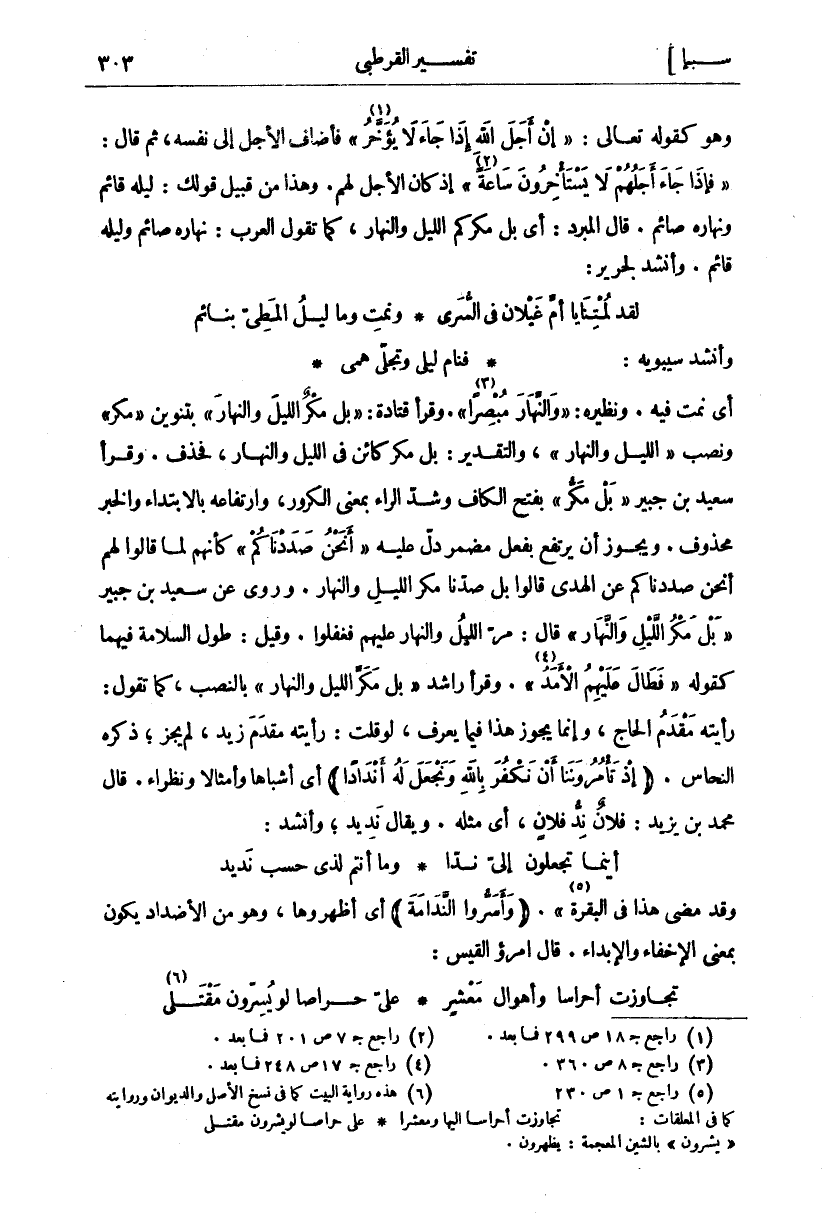 سبإ] تفسير القرطبى ٣٠٣
وهو كقوله تعالى : « إِنْ أَجَلَ اللهِ إِذَا جَاءَ لَا يُؤَخَّرُ (١) » فأضاف الأجل إلى نفسه، ثم قال :
« فإِذَا جَاءَ أَجَلُهُمْ لَا يَسْتَأْخِرُونَ سَاعَةً (٢) » إذ كان الأجل لهم . وهذا من قبيل قولك : ليله قائم
ونهاره صائم . قال المبرد : أى بل مكركم الليل والنهار ، كما تقول العرب : نهاره صائم وليله
قائم . وأنشد لجرير :
لقد لُمْتِنا يا أمّ غَيْلان فى السُّرَى * ونمتِ وما ليلُ المَطِىّ بنائم
وأنشد سيبويه : * فنام ليلى وتجلّى همى *
أى نمت فيه . ونظيره : « وَالنَّهَارَ مُبْصِرًا (٣) » . وقرأ قتادة : « بل مَكْرٌ الليلَ والنهارَ » بتنوين « مكر »
ونصب « الليل والنهار » ، والتقدير : بل مكر كائن فى الليل والنهار ، فحذف . وقرأ
سعيد بن جبير « بَلْ مَكَرُّ » بفتح الكاف وشدّ الراء بمعنى الكرور ، وارتفاعه بالابتداء والخبر
محذوف . ويجوز أن يرتفع بفعل مضمر دلّ عليه « أَنَحْنُ صَدَدْنَاكُمْ » كأنهم لما قالوا لهم
أنحن صددناكم عن الهدى قالوا بل صدّنا مكر الليل والنهار . وروى عن سعيد بن جبير
« بَلْ مَكْرُ اللَّيْلِ وَالنَّهَارِ » قال : مرّ الليلُ والنهار عليهم فغفلوا . وقيل : طول السلامة فيهما
كقوله « فَطَالَ عَلَيْهِمُ الْأَمَدُ (٤) » . وقرأ راشد « بل مَكَرَّ الليل والنهار » بالنصب ، كما تقول :
رأيته مَقْدَمُ الحاج ، وإنما يجوز هذا فيما يعرف ، لوقلت : رأيته مقدَمَ زيد ، لم يجز ؛ ذكره
النحاس . ﴿ إِذْ تَأْمُرُونَنَا أَنْ نَكْفُرَ بِاللهِ وَنَجْعَلَ لَهُ أَنْدَادًا ﴾ أى أشباها وأمثالا ونظراء . قال
محمد بن يزيد : فلانٌ نِدُّ فلانٍ ، أى مثله . ويقال نَدِيد ؛ وأنشد :
أينما تجعلون إلىّ نِدّا * وما أنتم لذى حسب نَديد
وقد مضى هذا فى البقرة (٥) » . ﴿ وَأَسَرُّوا النَّدَامَةَ ﴾ أى أظهروها ، وهو من الأضداد يكون
بمعنى الإخفاء والإبداء . قال امرؤ القيس :
تجاوزت أحراسا وأهوال مَعْشرٍ * علىّ حراصا لو يُسِرّون مَقْتَلِى (٦)
(١) راجع جـ ١٨ ص ٢٩٩ فما بعد . (٢) راجع جـ ٧ ص ٢٠١ فما بعد .
(٣) راجع جـ ٨ ص ٣٦٠ . (٤) راجع جـ ١٧ ص ٢٤٨ فما بعد .
(٥) راجع جـ ١ ص ٢٣٠ (٦) هذه رواية البيت كما فى نسخ الأصل والديوان وروايته
كما فى المعلقات : تجاوزت أحراسا اليها ومعشرا * على حراصا لو يشرون مقتلى
« يشرون » بالشين المعجمة : يظهرون .